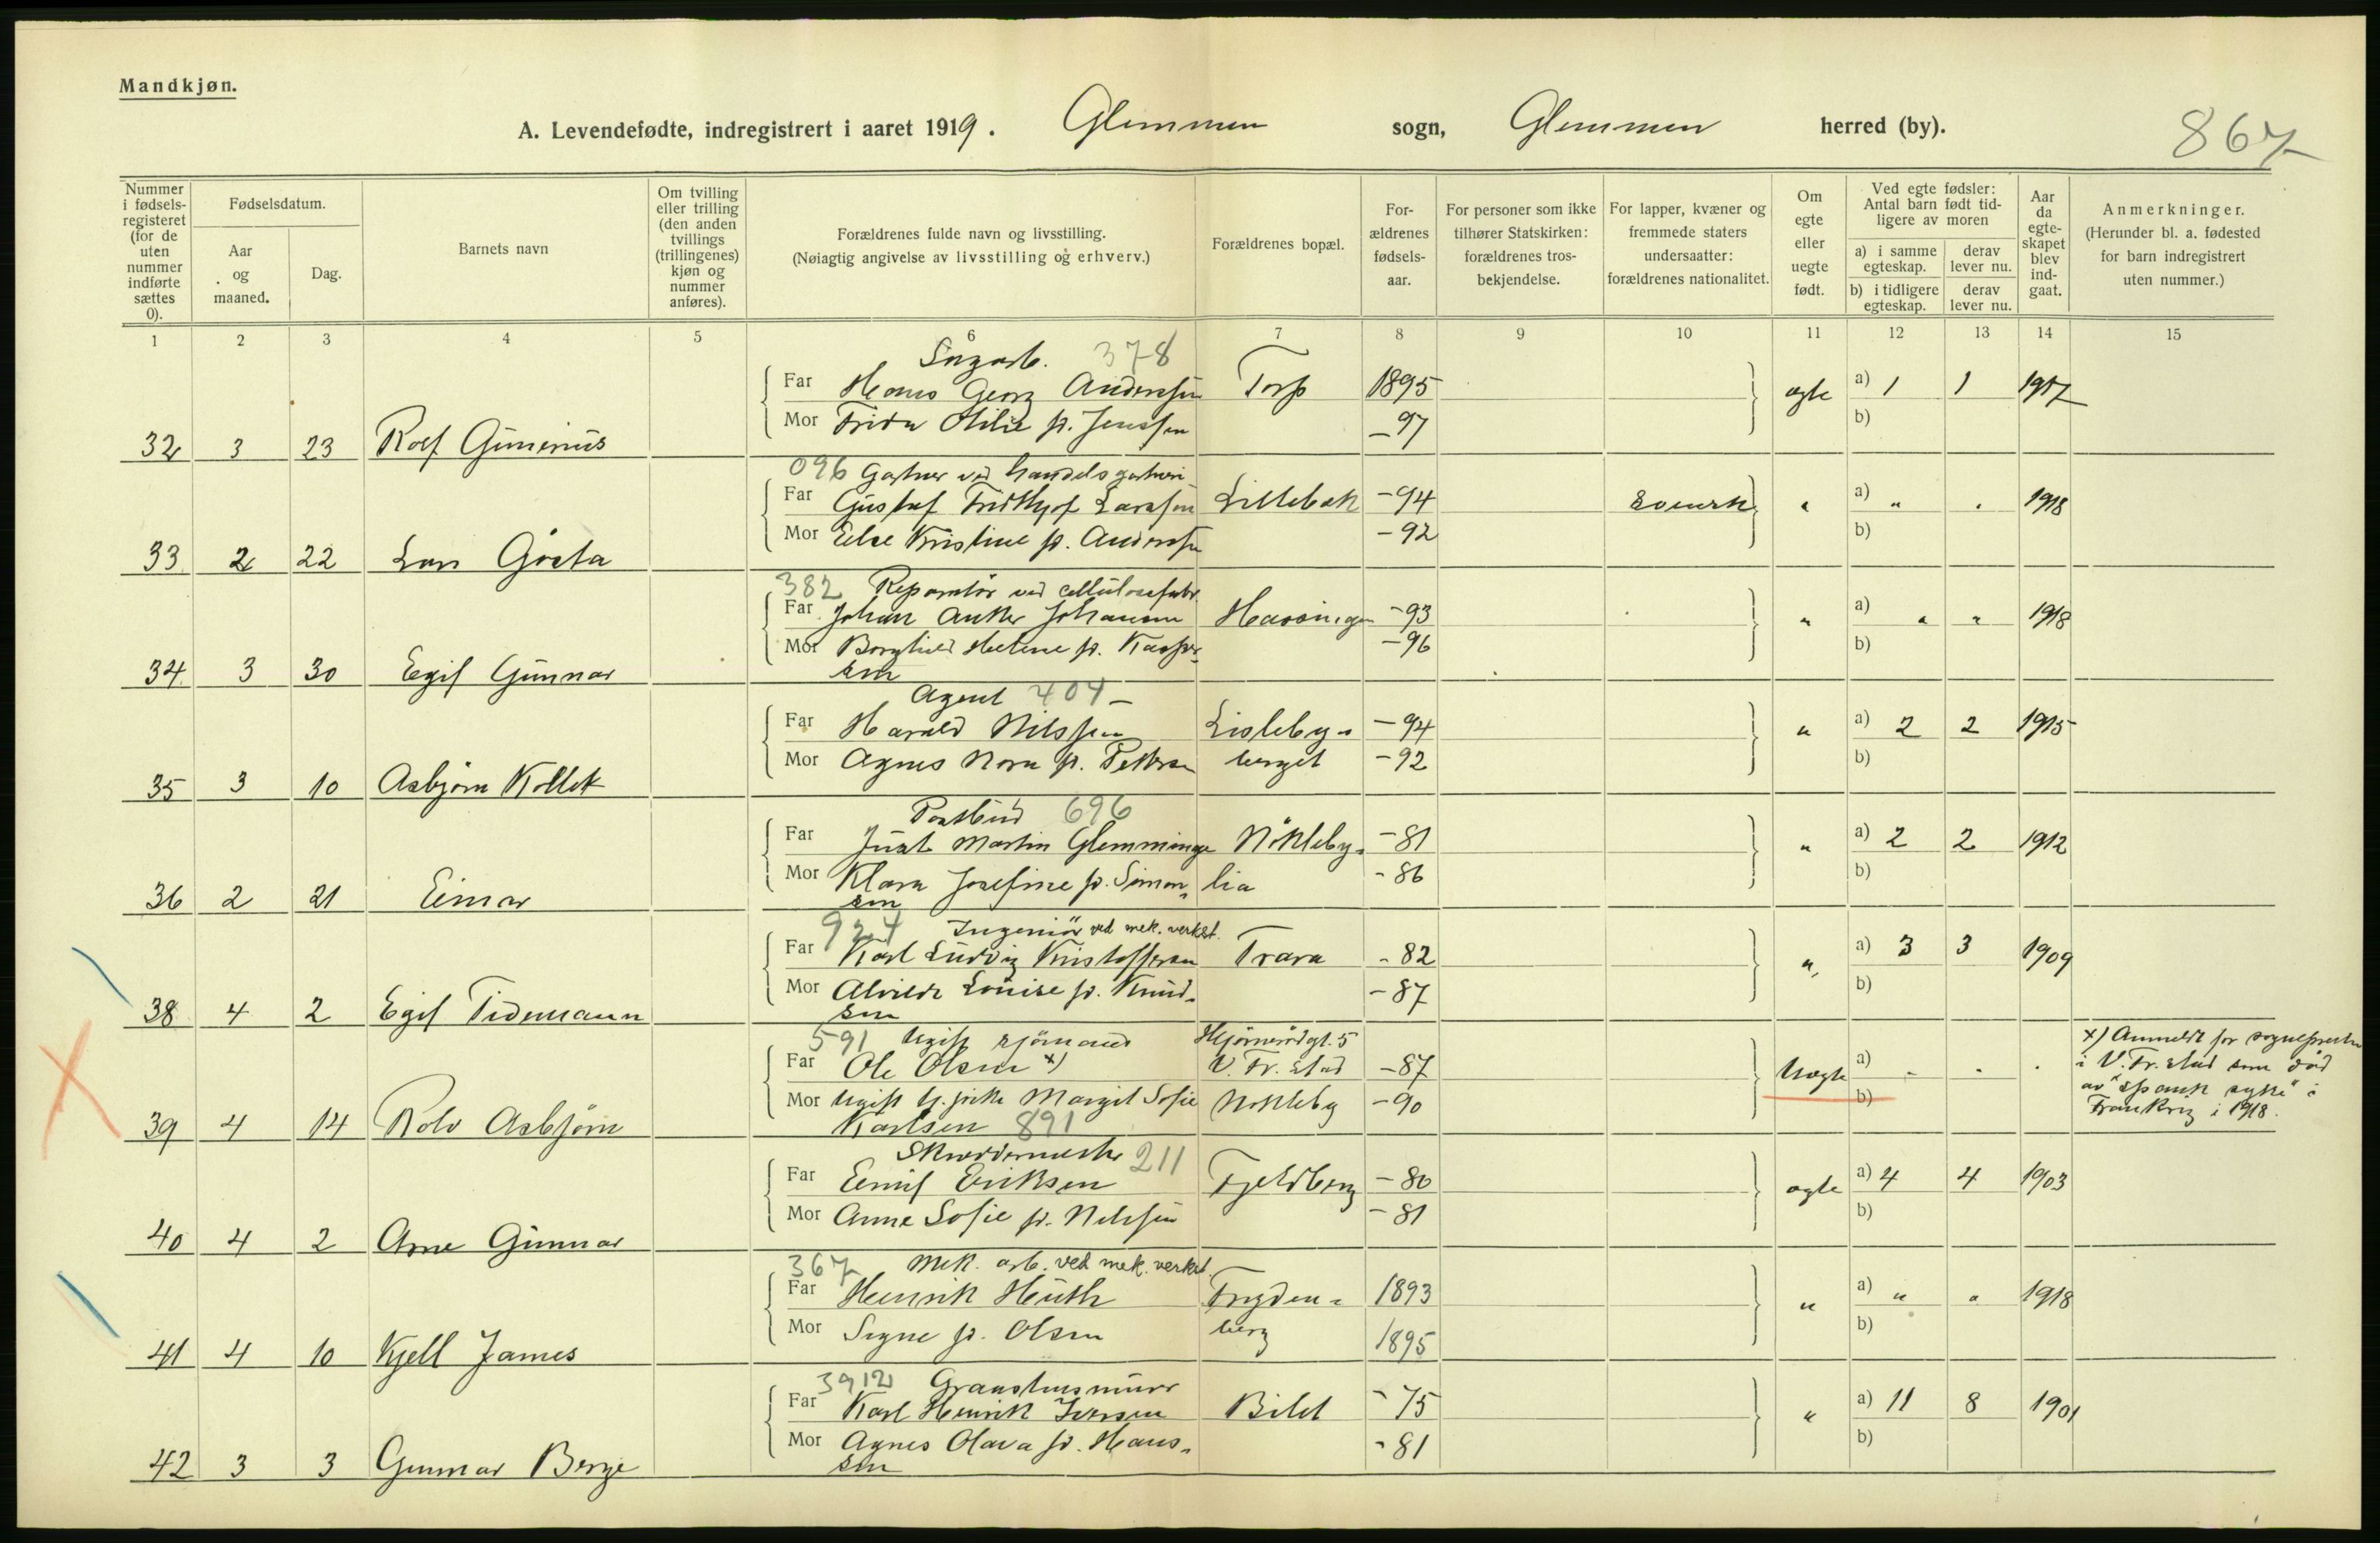 Mandkjøn.
A. Levendefødte, indregistrert i aaret 1919. Glemmen sogn, Glemmen herred (by).
867
Nummer i fødsels-registeret (for de uten nummer indførte sættes 0).
Fødselsdatum.
Aar og maaned.
Dag.
Barnets navn
Om tvilling eller trilling (den anden tvillings (trillingenes) kjøn og nummer anføres).
Forældrenes fulde navn og livsstilling.
(Nøiagtig angivelse av livsstilling og erhverv.)
Forældrenes bopæl.
For-ældrenes fødsels-aar.
For personer som ikke tilhører Statskirken: forældrenes tros-bekjendelse.
For lapper, kvæner og fremmede staters undersaatter: forældrenes nationalitet.
Om egte eller uegte født.
Ved egte fødsler: Antal barn født tid-ligere av moren
a) i samme egteskap. derav lever nu.
b) i tidligere egteskap. derav lever nu.
Aar da egte-skapet blev ind-gaat.
Anmerkninger.
(Herunder bl. a. fødested for barn indregistrert uten nummer.)
1 2 3 4 5 6 7 8 9 10 11 12 13 14 15
Sagarb. 378
Far Hans Georg Anderssen Torp 1895 egte a) 1 1 1917
Mor Frida Otilie f. Jenssen -97 b)
32 3 23 Rolf Gunerius
096 Gartner ved handelsgartneri
Far Gustaf Fridthjof Larssen Lillebæk -94 Svensk " a) " " 1918
Mor Else Kristine f. Anderssen -92 b)
33 2 22 Lars Gösta
382 Reparatör ved cellulosefabr.
Far Johan Anker Johansen Hassingen -93 " a) " " 1918
Mor Borghild Helene f. Kasper- -96 b)
sen
34 3 30 Egil Gunnar
Agent 404 -
Far Harald Nilssen Lisleby- -94 " a) 2 2 1915
Mor Agnes Nora f. Pettersen berget -92 b)
35 3 10 Asbjørn
Postbud 696
Far Just Martin Glemminge Nökleby- -81 " a) 2 2 1912
Mor Klara Josefine f. Simon- lia -86 b)
sen
36 2 21 Einar
924 Ingeniör ved mek. verkst.
Far Karl Ludvig Kristoffersen Trara -82 " a) 3 3 1909
Mor Alvilde Louise f. Knud- -87 b)
sen
38 4 2 Egil Tidemann
591 Ugift sjömand Hjörnerödgt. 5
Far Ole Olsen x) V. Fr.stad -87 Uegte a) - - -
Mor Ugift Margit Sofie Nökleby -90 b)
Karlsen 891
39 4 14 Rolv Asbjörn
x) Anmeldt for sognepresten
i V. Fr.stad som död
av "spansk syke" i
Frankrig i 1918.
Skreddermester 211
Far Emil Eriksen Fjeldberg -80 egte a) 4 4 1903
Mor Anne Sofie f. Nilssen -81 b)
40 4 2 Arne Gunnar
367 Mek. arb. ved mek. verkst.
Far Henrik Huth Frydén- 1893 " a) " " 1918
Mor Signe f. Olsen berg 1895 b)
41 4 10 Kjell James
3912 Graastensmurer
Far Karl Henrik Iversen Bilet -75 " a) 11 8 1901
Mor Agnes Olava f. Hans- -81 b)
sen
42 3 3 Gunnar Berge